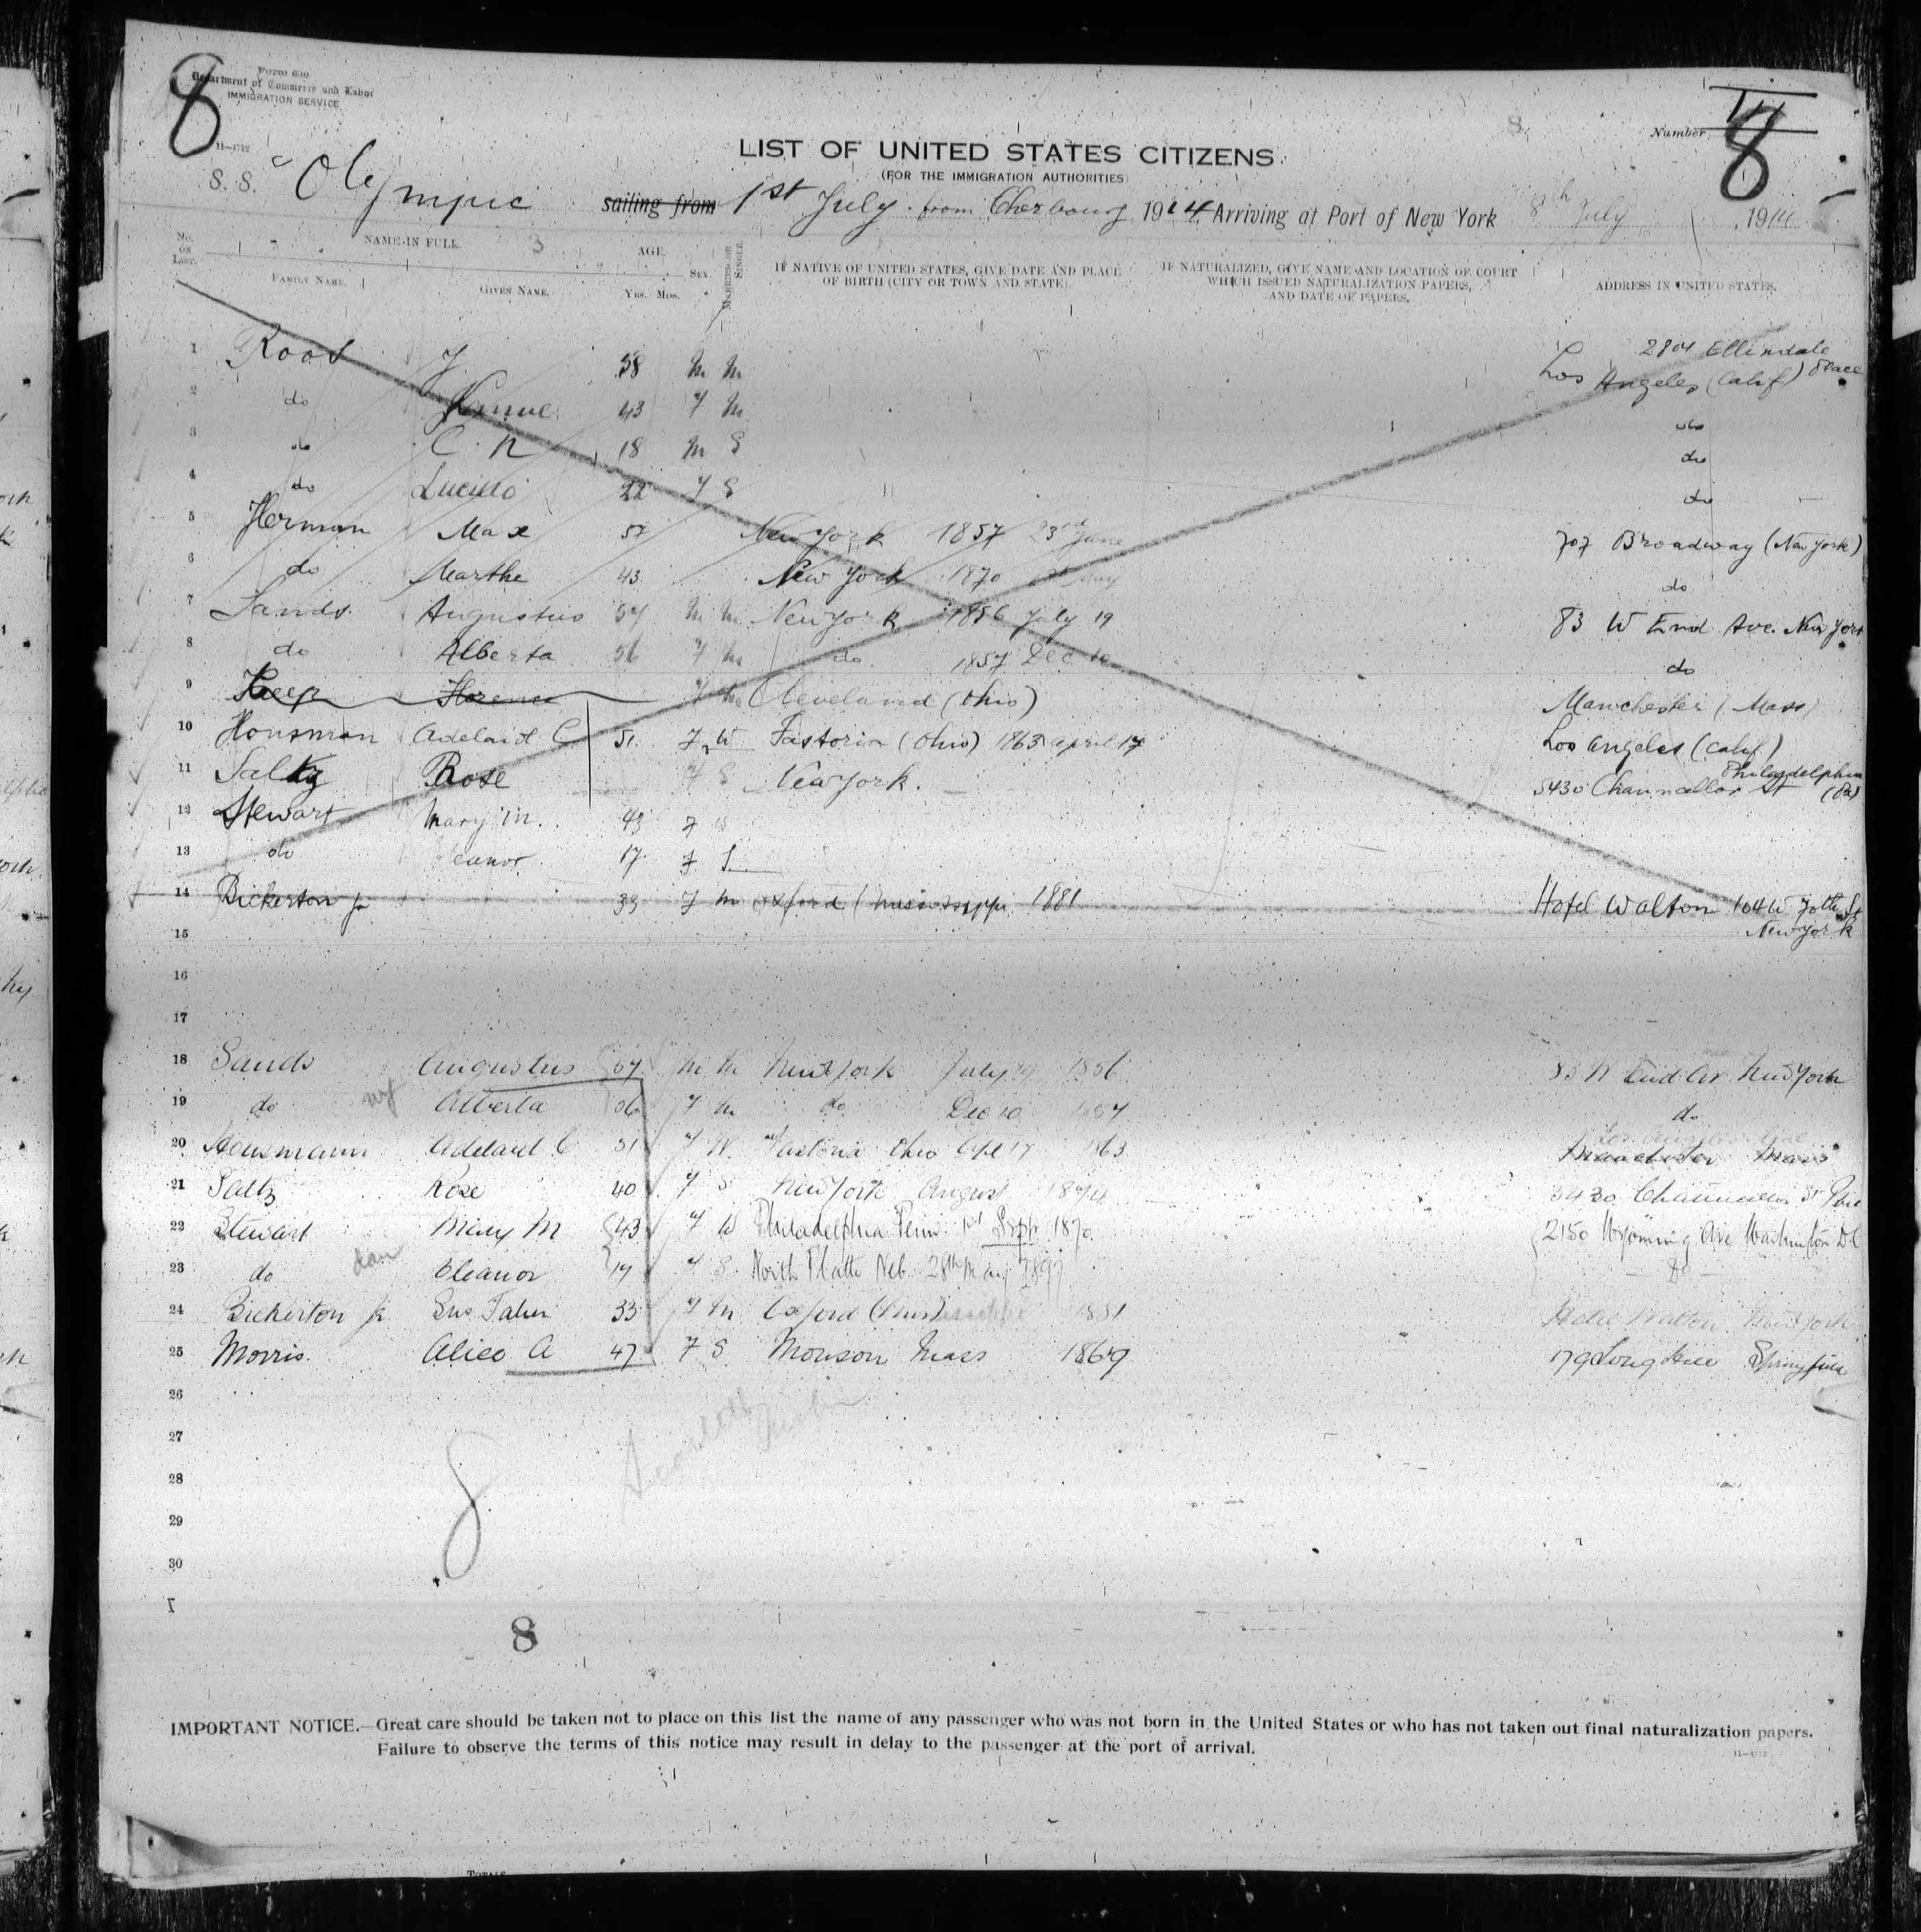 8
Form 630
Department of Commerce and Labor
IMMIGRATION SERVICE
11—1712
Number 8
LIST OF UNITED STATES CITIZENS
(FOR THE IMMIGRATION AUTHORITIES)
S. S. Olympic sailing from 1st July from Cherbourg 1914 Arriving at Port of New York 8th July 1914
No. ON LIST. NAME IN FULL. AGE. SEX. MARRIED OR SINGLE. IF NATIVE OF UNITED STATES, GIVE DATE AND PLACE OF BIRTH (CITY OR TOWN AND STATE). IF NATURALIZED, GIVE NAME AND LOCATION OF COURT WHICH ISSUED NATURALIZATION PAPERS, AND DATE OF PAPERS. ADDRESS IN UNITED STATES.
FAMILY NAME. GIVEN NAME. YRS. MOS.
1 Roos J 58 M M 2804 Ellendale Place Los Angeles (Calif)
2 do 43 F M do
3 do C. N 18 M S do
4 do 22 F S do
5 Herman Max 57 New York 1857 23rd June 707 Broadway (New York)
6 do Marthe 43 New York 1870 May do
7 Sands Augustus 57 M M New York 1856 July 19 83 W End Ave. New York
8 do Alberta 56 F M do 1857 Dec 10 do
9 Keep Florence F M Cleveland (Ohio) Manchester (Mass)
10 Housman Adelaid C 51 F W Fastoria (Ohio) 1863 April 17 Los Angeles (Calif)
11 Saltz Rose F S New York. 5430 Chancellor St Philadelphia (Pa)
12 Stewart Mary M. 43 F W
13 do Eleanor 17 F S
14 Bickerton Jr 33 F M Oxford (Mississippi 1881 Hotel Walton 104 W 70th St New York
15
16
17
18 Sands Augustus 57 M M New York July 19 1856 83 W End Av New York
19 do wf Alberta 56 F M do Dec 10 1857 do
20 Housmann Adelaid C 51 F W Fastoria Ohio Apl 17 1863 Los Angeles Manchester Mass
21 Saltz Rose 40 F S New York August 1874 5430 Chancellor St
22 Stewart Mary M 43 F W Philadelphia Penn 1st Sept 1870 2150 Wyoming Ave Washington DC
23 do dau Eleanor 17 F S North Platte Neb 28th May 1897 Do
24 Bickerton Jr 33 F M Oxford (Mississippi 1881 Hotel Walton New York
25 Morris Alice A 47 F S Monson Mass 1869 179 Long Hill Springfield
26
27
28
29
30
8
8
IMPORTANT NOTICE.—Great care should be taken not to place on this list the name of any passenger who was not born in the United States or who has not taken out final naturalization papers.
Failure to observe the terms of this notice may result in delay to the passenger at the port of arrival.
11—1712
TOTALS